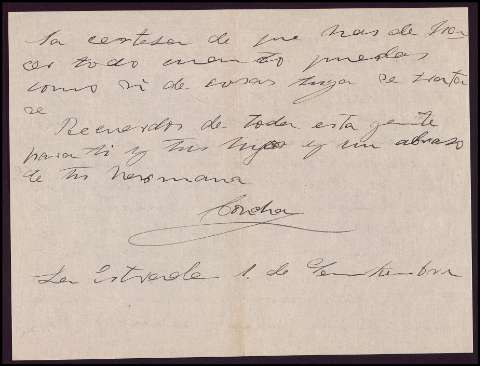 la certesa de que has de hacer
cer todo cuanto puedas
como si de cosas tuya se trata
se
Recuerdos de toda esta gente
para ti y tus hijos y un abraso
de tu hermana
Concha
La Estrada 1. de Septiembre